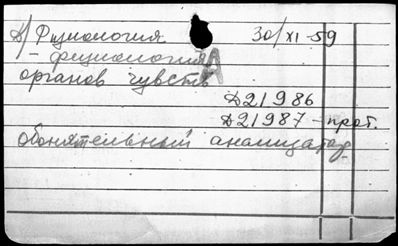 д) Физиология 30/XI-59
- физиология
органов чувств А
Д21986
Д21987 - прот.
обонятельный анализатор